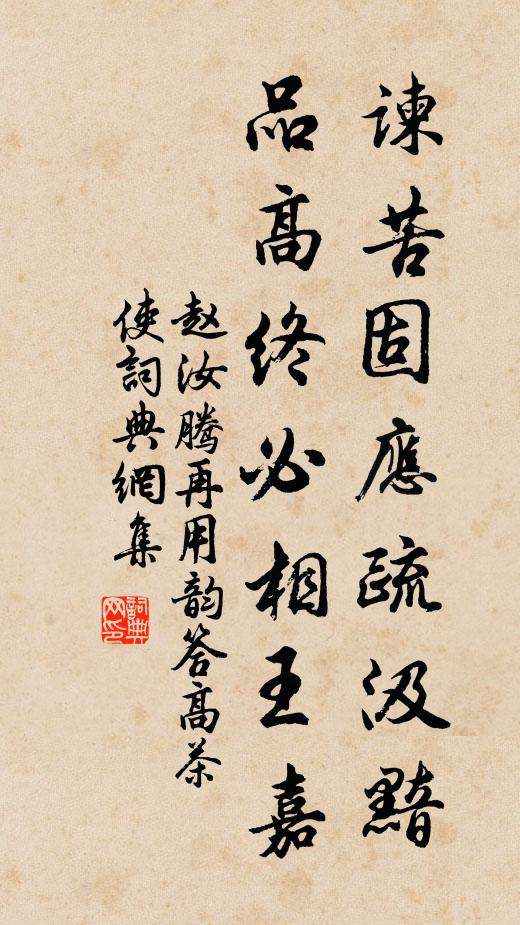 諫苦固應疏汲黯
品高終必相王嘉
赵汝騰再用韵答高茶
使詞典網集
詞典网印